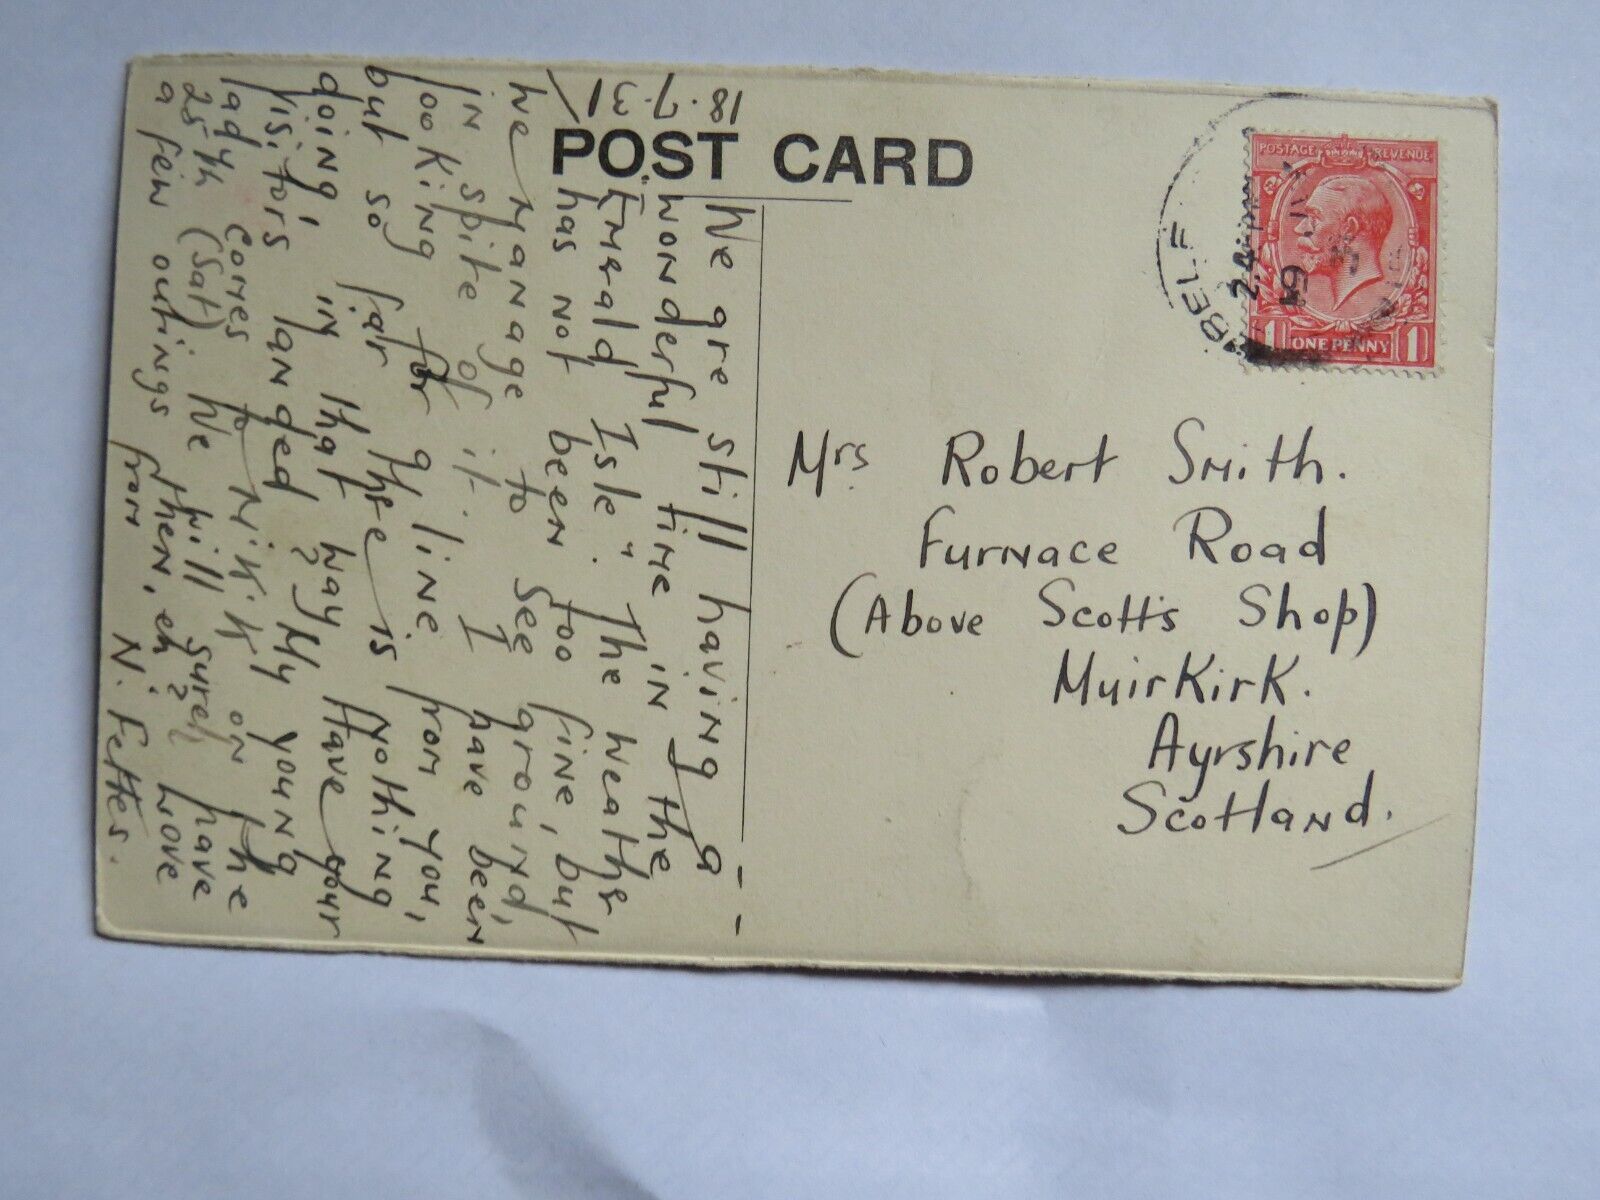 POST CARD
18.7.31
We are still having a
wonderful time in the
"Emerald Isle". The weather
has not been too fine, but
we manage to see ground,
in spite of it. I have been
looking for a line from you,
but so far there is nothing
doing, in that way. Have your
visitors landed? My young
lady comes to N'K'K on the
25th (Sat) We will surely have
a few outings then, eh? more
from
N. Fettes.
POSTAGE REVENUE
1 ONE PENNY 1
BELF
2.
Mrs Robert Smith.
Furnace Road
(Above Scott's Shop)
Muirkirk.
Ayrshire
Scotland.